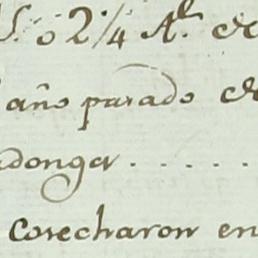 S. ó 2 1/4 A.l de
año pasado de
adonga . . . . . .
cosecharon en